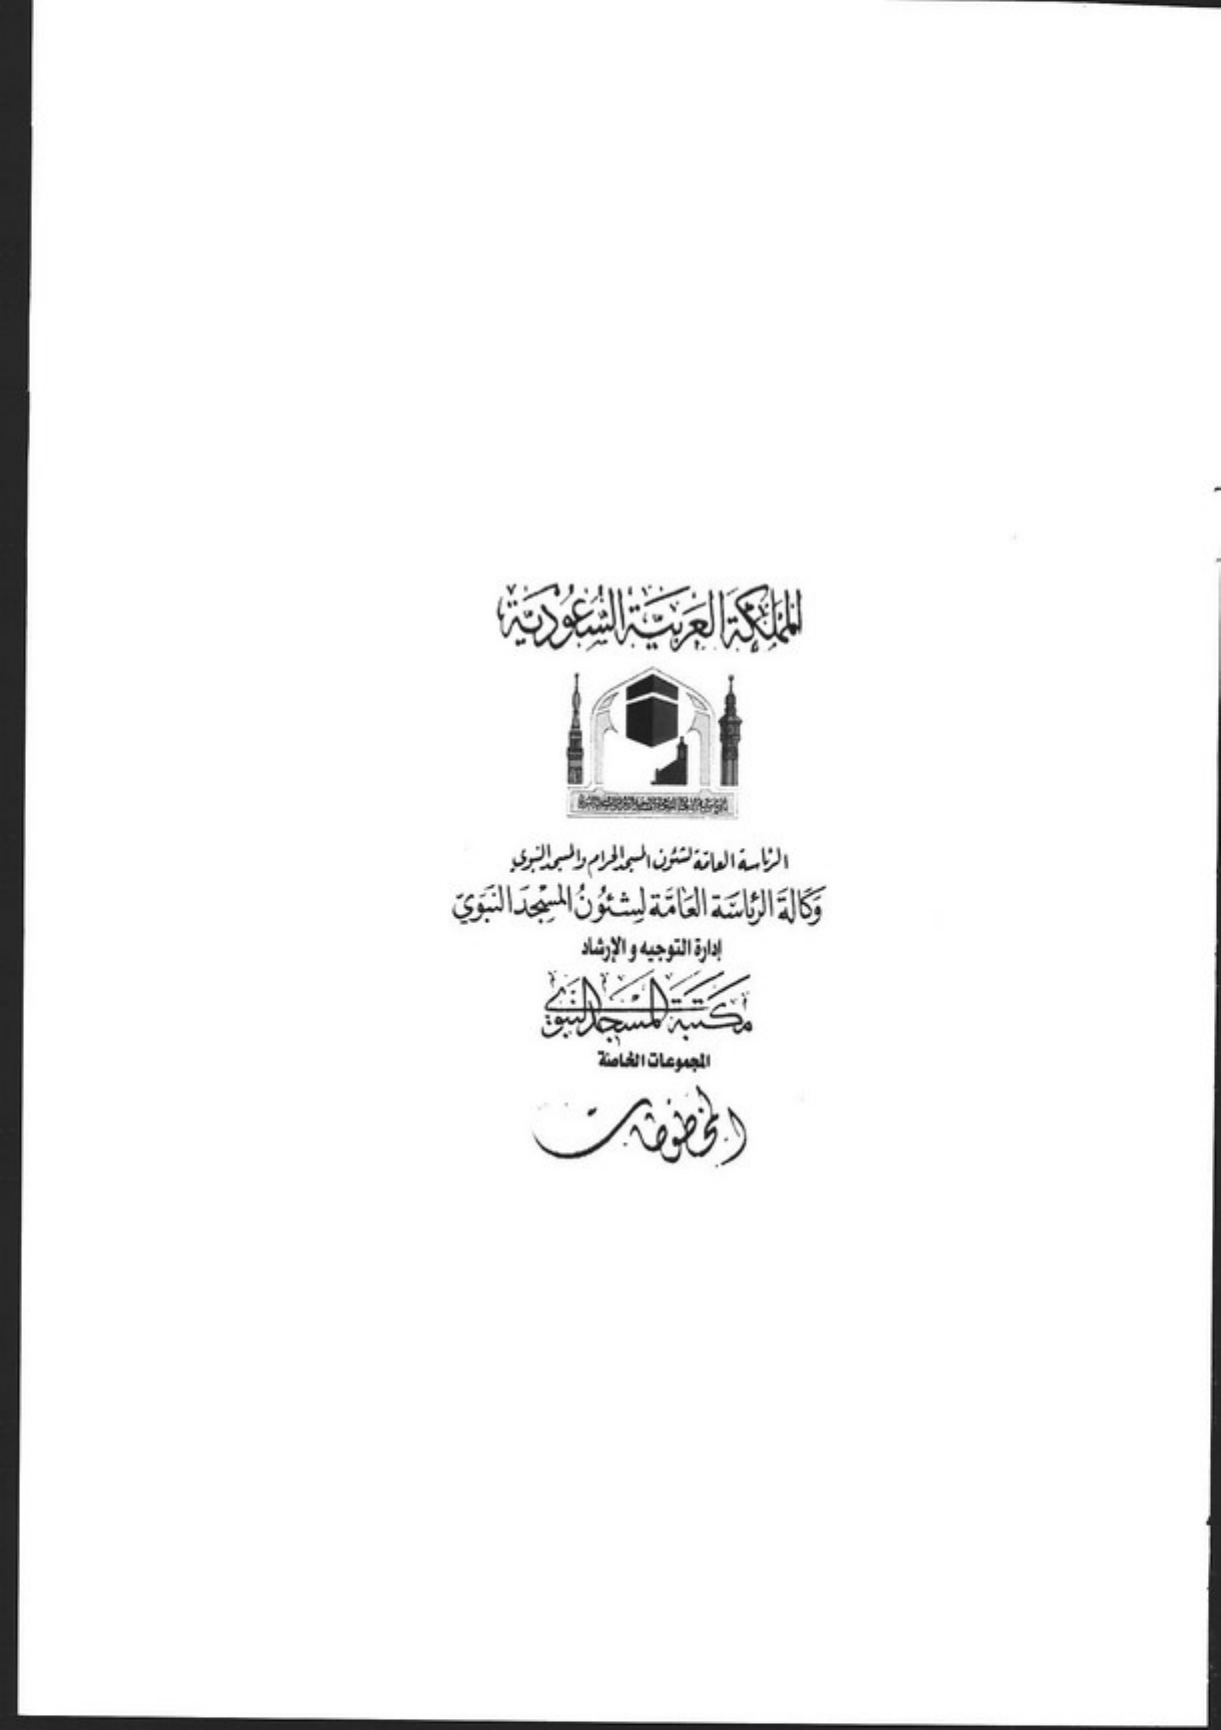 المملكة العربية السعودية
الرئاسة العامة لشئون المسجد الحرام والمسجد النبوي
وَكَالَة الرِّئاسَة العَامَّة لِشئُونُ المسْجِدَ النَّبَوِيّ
إدارة التوجيه و الإرشاد
مكتبة المسجد النبوي
المجموعات الخاصة
المخطوطات